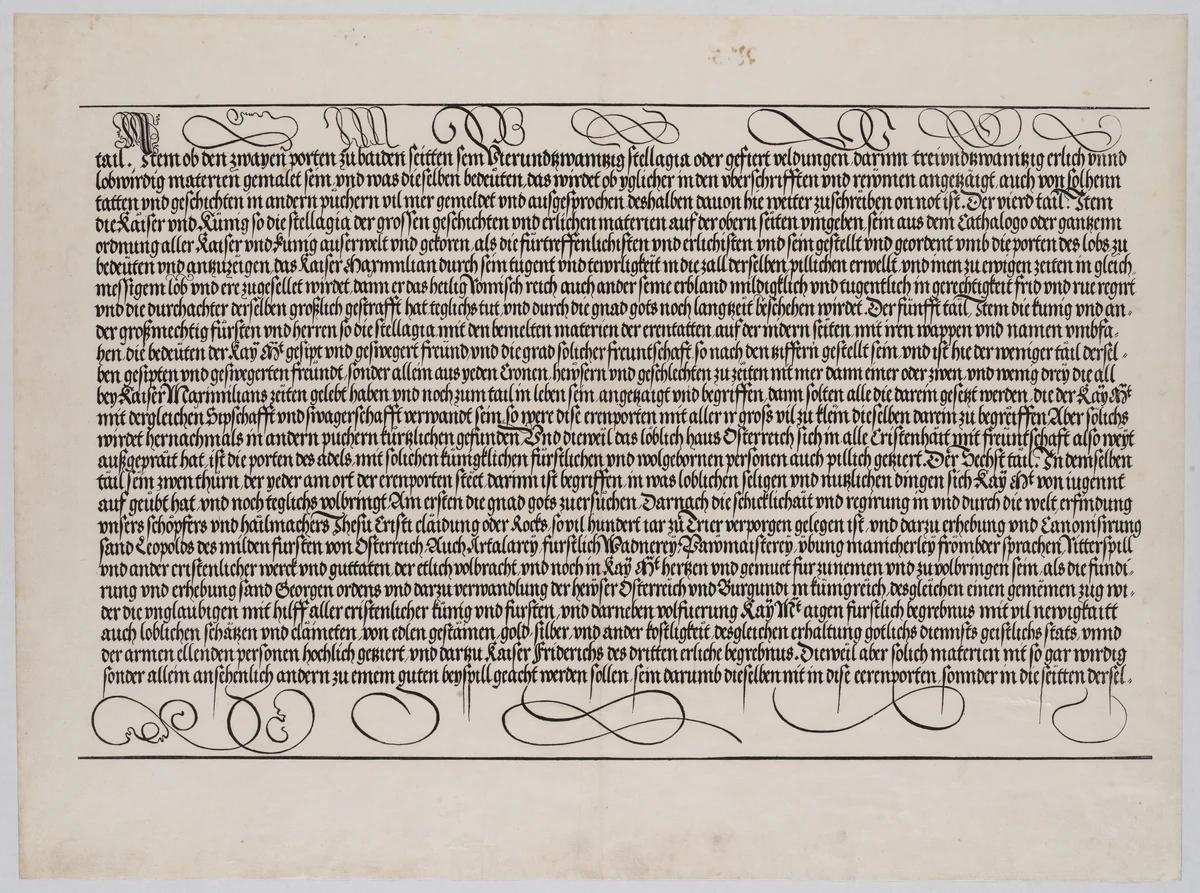 tail. Item ob den zwayen porten zů baiden seitten sein Vierundtzwaintzig stellagia oder gefiert veldungen, darinn treivndtzwaintzig erlich vnnd
lobwirdig materien gemalet sein, vnd was dieselben bedeüten, das wirdet ob yglicher in den vberschrifften vnd reuͤmen angetzaigt, auch von solhenn
tatten vnd geschichten in andern püchern vil mer gemeldet vnd ausgesprochen, deshalben dauon hie weiter zuschreiben on not ist. Der vierd tail. Item
die Kaiser vnd Künig so die stellagia der grossen geschichten vnd erlichen materien auf der obern seiten vmgeben, sein aus dem Cathalogo oder gantzenn
ordnung aller Kaiser vnd kunig auserwelt vnd gekoren, als die fürtreffenlichisten vnd erlichisten, vnd sein gestellt vnd geordent vmb die porten des lobs zu
bedeüten vnd antzuzeigen, das Kaiser Maxmilian durch sein tugent vnd tewrligkeit in die zall derselben pillichen erwellt, vnd inen zu ewigen zeiten in gleich,
messigem lob vnd ere zugesellet wirdet, dann er das heilig Romisch reich auch ander seine erbland mildigklich vnd tugentlich in gerechtigkeit frid vnd rue regirt
vnd die durchachter derselben großlich gestrafft hat, teglichs tut, vnd durch die gnad gots noch langtzeit beschehen wirdet. Der fünfft tail, Item die kunig vnd an-
der großmechtig fürsten vnd herren so die stellagia mit den bemelten materien der erentatten auf der indern seiten mit iren wappen vnd namen vmbfa-
hen, die bedeüten der Kay Mt gesipt vnd geswegert freünd, vnd die grad solicher freuntschaft, so nach den tziffern gestellt sein, vnd ist hie der weniger tail dersel-
ben gesipten vnd geswegerten freündt, sonder allein aus yeden Cronen, hewsern vnd geschlechten zu zeiten nit mer dann einer oder zwen, vnd wenig drey die all
bey Kaiser Maximilians zeiten gelebt haben vnd noch zum tail in leben sein, angetzaigt vnd begriffen, dann solten alle die darein gesetzt werden, die der Kay Mt
mit dergleichen Sipschafft vnd swagerschafft verwandt sein, so were dise erenporten mit aller ir groß vil zu klein dieselben darein zu begreiffen, Aber solichs
wirdet hernachmals in andern püchern kürtzlichen gefunden. Vnd dieweil das löblich haus Österreich sich in alle Cristenhait mit freuntschaft also weyt
außgeprait hat, ist die porten des adels, mit solichen künigklichen fürstlichen vnd wolgebornen personen auch pillich getziert. Der Sechst tail. In demselben
tail sein zwen thürn, der yeder am ort der erenporten steet darinn ist begriffen, in was loblichen seligen vnd nutzlichen dingen sich Kay Mt von iugennt
auf geübt hat, vnd noch teglichs volbringt. Am ersten die gnad gots zuersüchen, Darnach die schicklichait vnd regirung in vnd durch die welt erfindung
vnsers schöpfers vnd hailmachers Jhesu Cristi claidung oder Rocks, so vil hundert iar zu Trier verporgen gelegen ist, vnd darzu erhebung vnd Canonisirung
sand Leopolds des milden fursten von Österreich, Auch Artalarey, furstlich Wadnerey, Pawmaisterey, übung manicherley frömbder sprachen, Ritterspill
vnd ander cristenlicher werck vnd guttaten, der etlich volbracht, vnd noch in Kay Mt hertzen vnd gemuet fur zunemen vnd zuvolbringen sein, als die fundi-
rung vnd erhebung sand Georgen ordens vnd darzu verwandlung der hewser Österreich vnd Burgundi in künigreich, desgleichen einen gemeinen zug wi-
der die vnglaubigen mit hilff aller cristenlicher künig vnd fursten, vnd darneben volfuerung Kay Mt aigen furstlich begrebnus mit vil newigkaitt
auch loblichen schätzen vnd clameten, von edlen gestainen, gold, silber, vnd ander kostligkeit, desgleichen erhaltung gotlichs diennsts geistlichs stats, vnnd
der armen ellenden personen hochlich getziert, vnd dartzu Kaiser Friderichs des dritten erliche begrebnus. Dieweil aber solich materien nit so gar wirdig
sonder allein ansehenlich andern zu einem guten beyspill geacht werden sollen, sein darumb dieselben nit in dise eerenporten, sonnder in die seitten dersel-